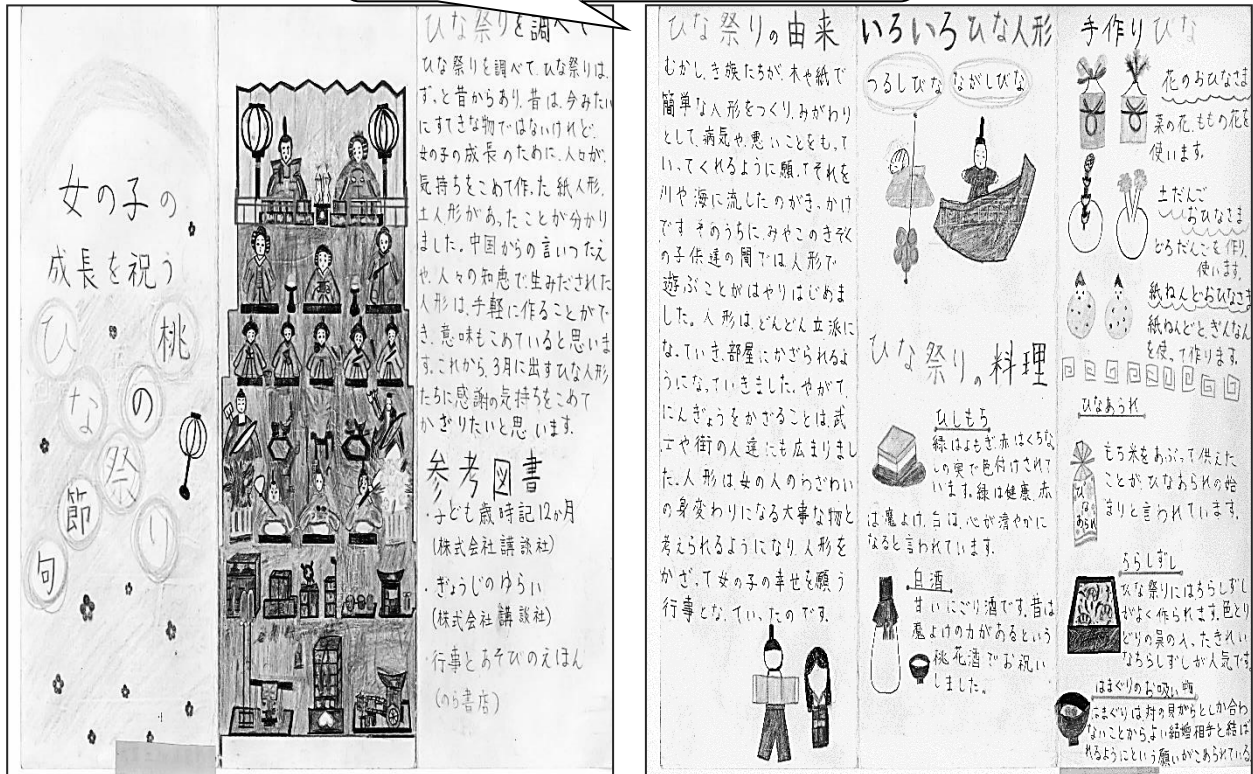 女の子の
成長を祝う
ひな祭り
桃の節句
ひな祭りを調べて
ひな祭りを調べて、ひな祭りは、
ずっと昔からあり、昔は、今みたい
にすてきな物ではないけれど、
女の子の成長のために、人々が、
気持ちをこめて作った紙人形、
土人形があったことが分かり
ました。中国からの言いつたえ
や、人々の知恵で生みだされた
人形は、手軽に作ることがで
き、意味もこめていると思いま
す。これから、3月に出すひな人形
たちに感謝の気持ちをこめて
かざりたいと思います。
参考図書
・子ども歳時記12か月
(株式会社講談社)
・ぎょうじのゆらい
(株式会社講談社)
・行事とあそびのえほん
(のら書店)
ひな祭りの由来
むかし、き族たちが、木や紙で
簡単な人形をつくり、みがわり
として病気や、悪いことをもって
いってくれるように願って、それを
川や海に流したのがきっかけ
です。そのうちに、みやこのきぞく
の子供達の間では人形で
遊ぶことがはやりはじめま
した。人形は、どんどん立派に
なっていき、部屋にかざられるよ
うになっていきました。やがて、
にんぎょうをかざることは、武
士や街の人達にも広まりまし
た。人形は女の人のわざわい
の身変わりになる大事な物と
考えられるようになり、人形を
かざって女の子の幸せを願う
行事になっていったのです。
いろいろひな人形
つるしびな
ながしびな
ひな祭りの料理
ひしもち
緑はよもぎ、赤はくちな
しの実で色付けされて
います。緑は健康、赤
は魔よけ、白は、心が清らかに
なると言われてます。
白酒
甘いにごり酒です。昔は
魔よけの力があるという
桃花酒でお祝い
しました。
手作りひな
花のおひなさま
菜の花、ももの花を
使います。
土だんご
おひなさま
どろだんごを作り、
使います。
紙ねんどおひなさま
紙ねんどとぎんなん
を使って作ります。
ひなあられ
もち米をあぶって供えた
ことが、ひなあられの始
まりと言われています。
ちらしずし
ひな祭りにはちらしずし
がよく作られます。色
どりの具の入ったきれい
なちらしずしが人気です
はまぐりのお吸い物